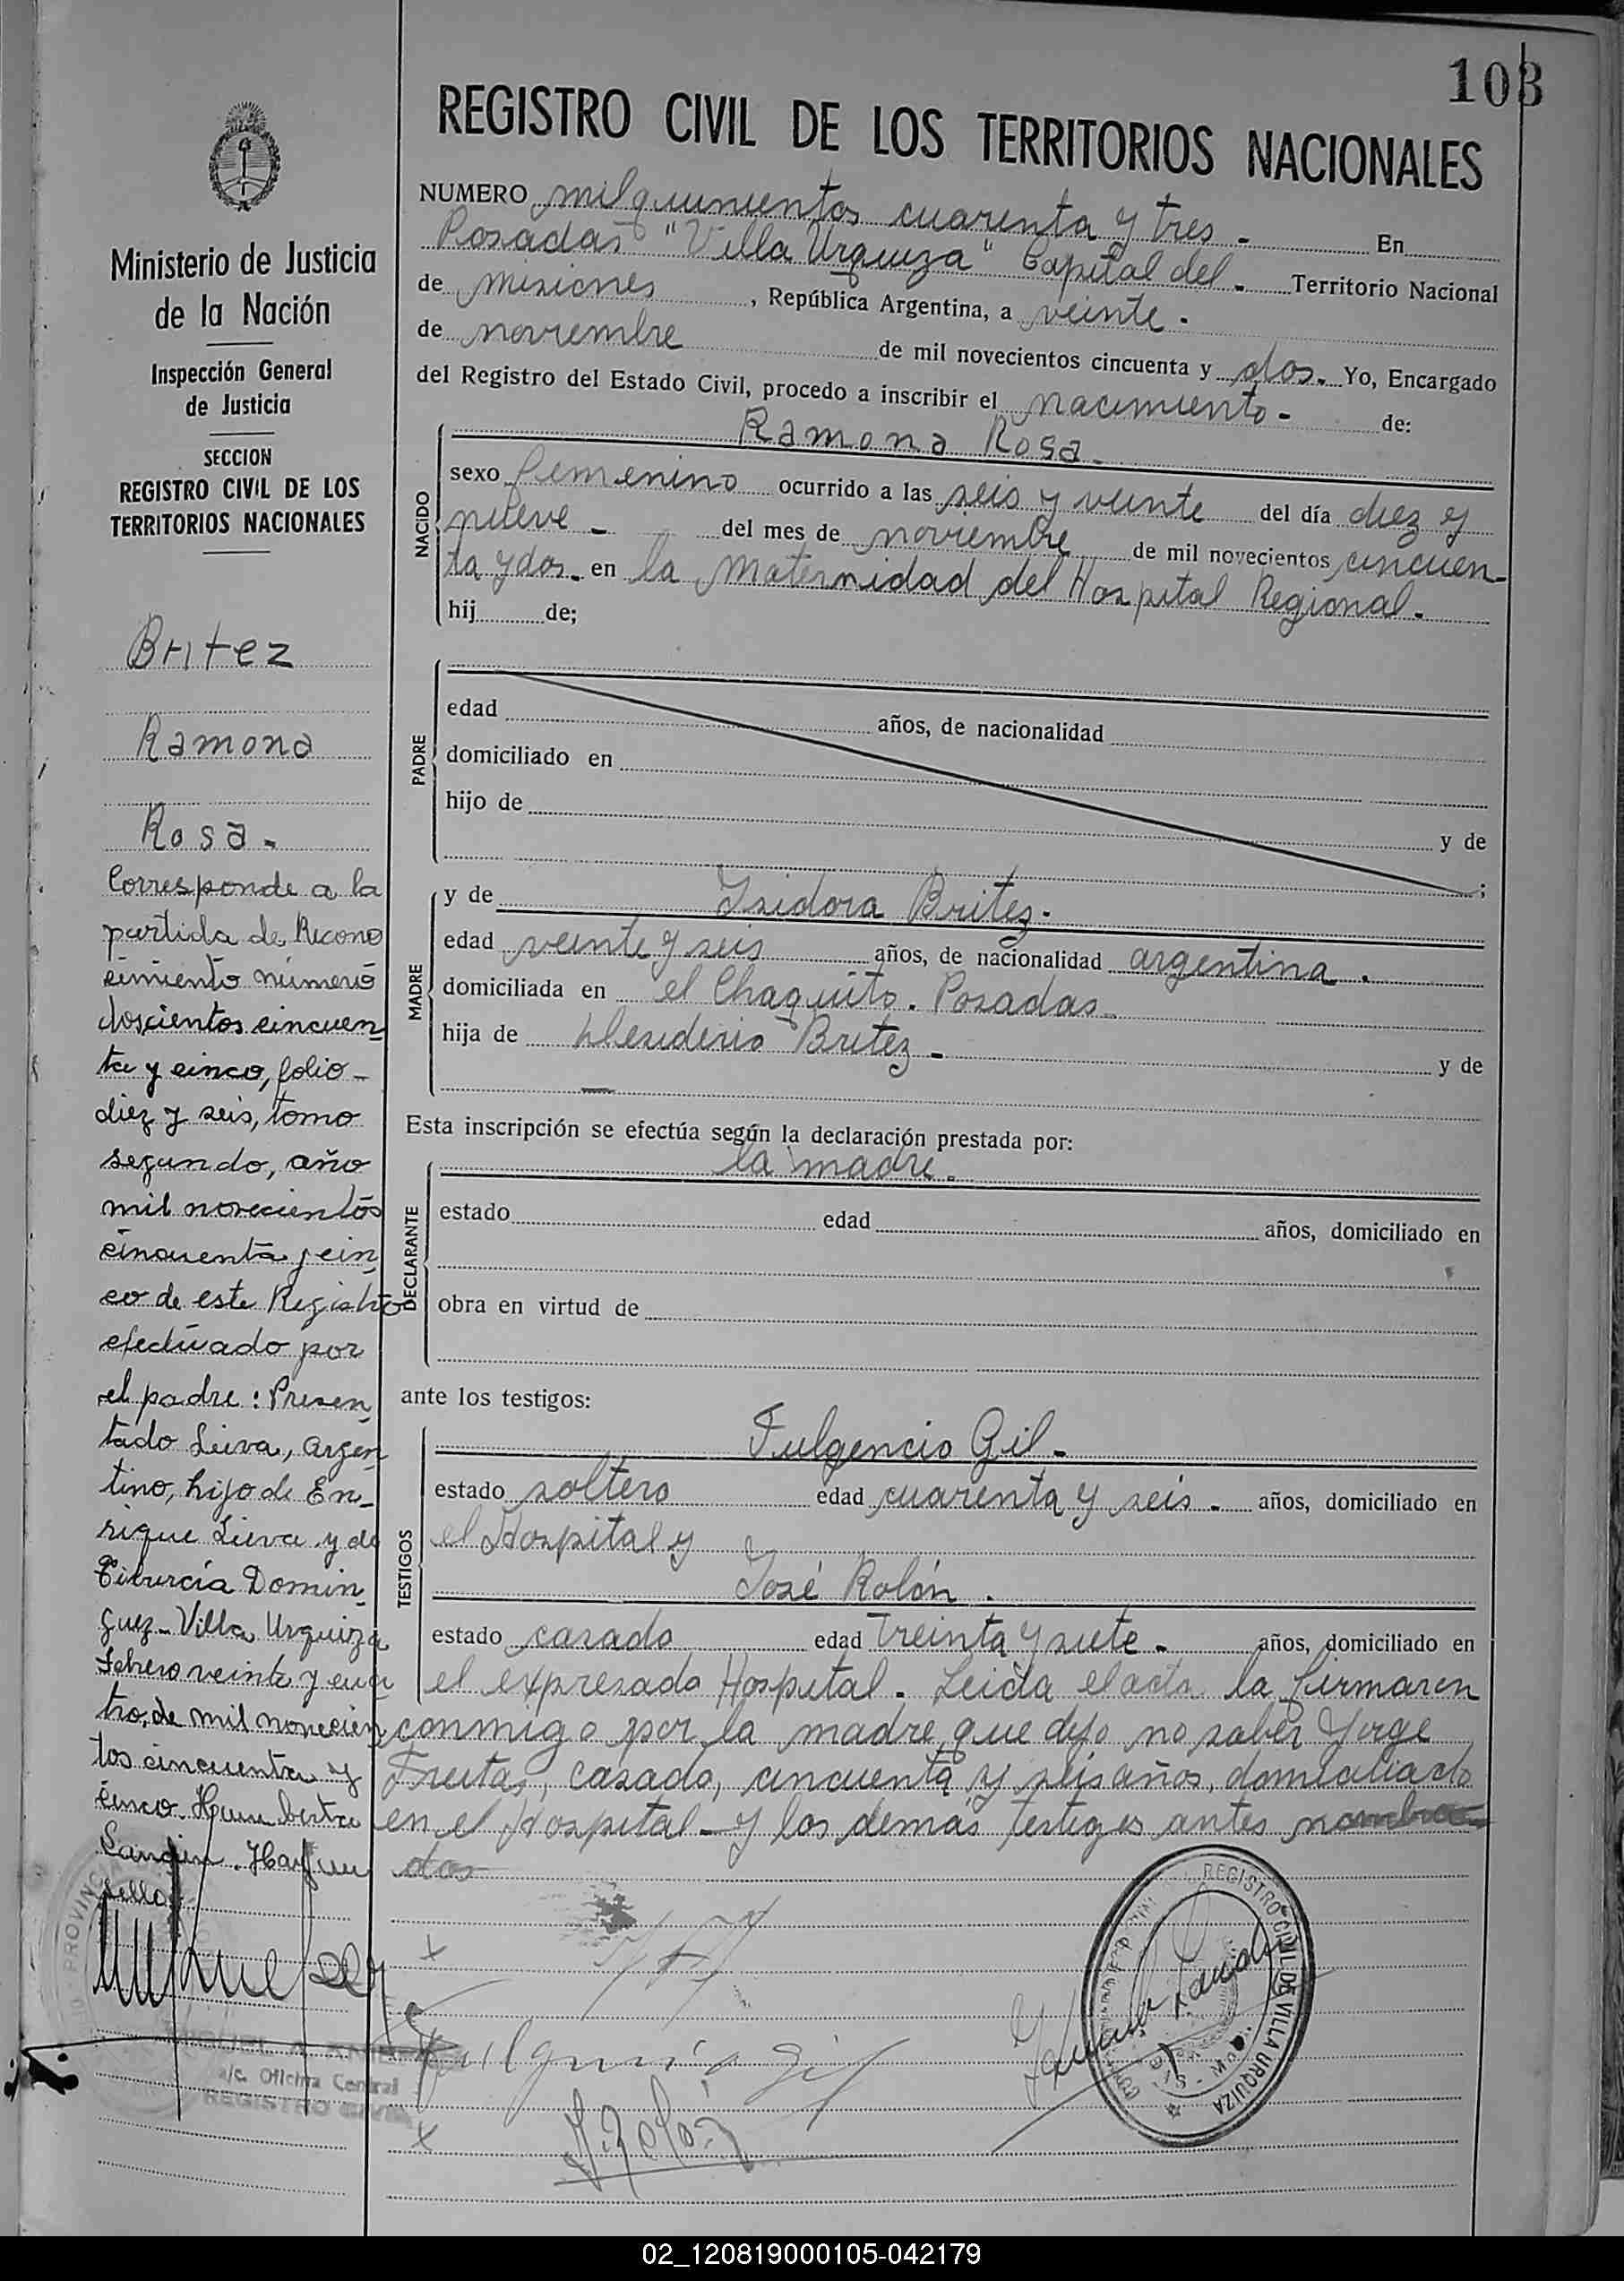 103
REGISTRO CIVIL DE LOS TERRITORIOS NACIONALES
NUMERO mil quinientos cuarenta y tres - En
Posadas "Villa Urquiza" Capital del - Territorio Nacional
de misiones, República Argentina, a veinte -
de noviembre de mil novecientos cincuenta y dos. Yo, Encargado
del Registro del Estado Civil, procedo a inscribir el nacimiento - de:
Ramona Rosa -
NACIDO
sexo femenino ocurrido a las seis y veinte del día diez y
nueve - del mes de noviembre de mil novecientos cincuen-
ta y dos. en la Maternidad del Hospital Regional.
hij de;
PADRE
edad años, de nacionalidad
domiciliado en
hijo de y de
;
MADRE
y de Isidora Britez.
edad veinte y seis años, de nacionalidad argentina.
domiciliada en el Chaquito. Posadas
hija de Desiderio Britez - y de
—
Esta inscripción se efectúa según la declaración prestada por:
la madre.
DECLARANTE
estado edad años, domiciliado en
obra en virtud de
ante los testigos:
TESTIGOS
Fulgencio Gil -
estado soltero edad cuarenta y seis - años, domiciliado en
el Hospital y
José Rolón.
estado casado edad treinta y siete - años, domiciliado en
el expresado Hospital. Leida el acta la firmaron
conmigo por la madre que dijo no saber Jorge
Freitas, casado, cincuenta y seis años, domiciliado
en el Hospital - y los demas testigos antes nombra
dos
Fulgencio Gil
J. Rolón
REGISTRO CIVIL DE VILLA URQUIZA
Ministerio de Justicia
de la Nación
Inspección General
de Justicia
SECCION
REGISTRO CIVIL DE LOS
TERRITORIOS NACIONALES
Britez
Ramona
Rosa -
Corresponde a la
partida de Recono
cimiento número
doscientos cincuen
ta y cinco, folio -
diez y seis, tomo
segundo, año
mil novecientos
cincuenta y cin
co de este Registro
efectuado por
el padre: Presen
tado Leiva, argen
tino, hijo de En-
rique Leiva y de
Tiburcia Domin
guez - Villa Urquiza
Febrero veinte y cua
tro, de mil novecien
tos cincuenta y
cinco. Humberto
Hay un
sello
PROVINCIA
MIGUEL A.
a/c. Oficina Central
REGISTRO CIVIL
02_120819000105-042179